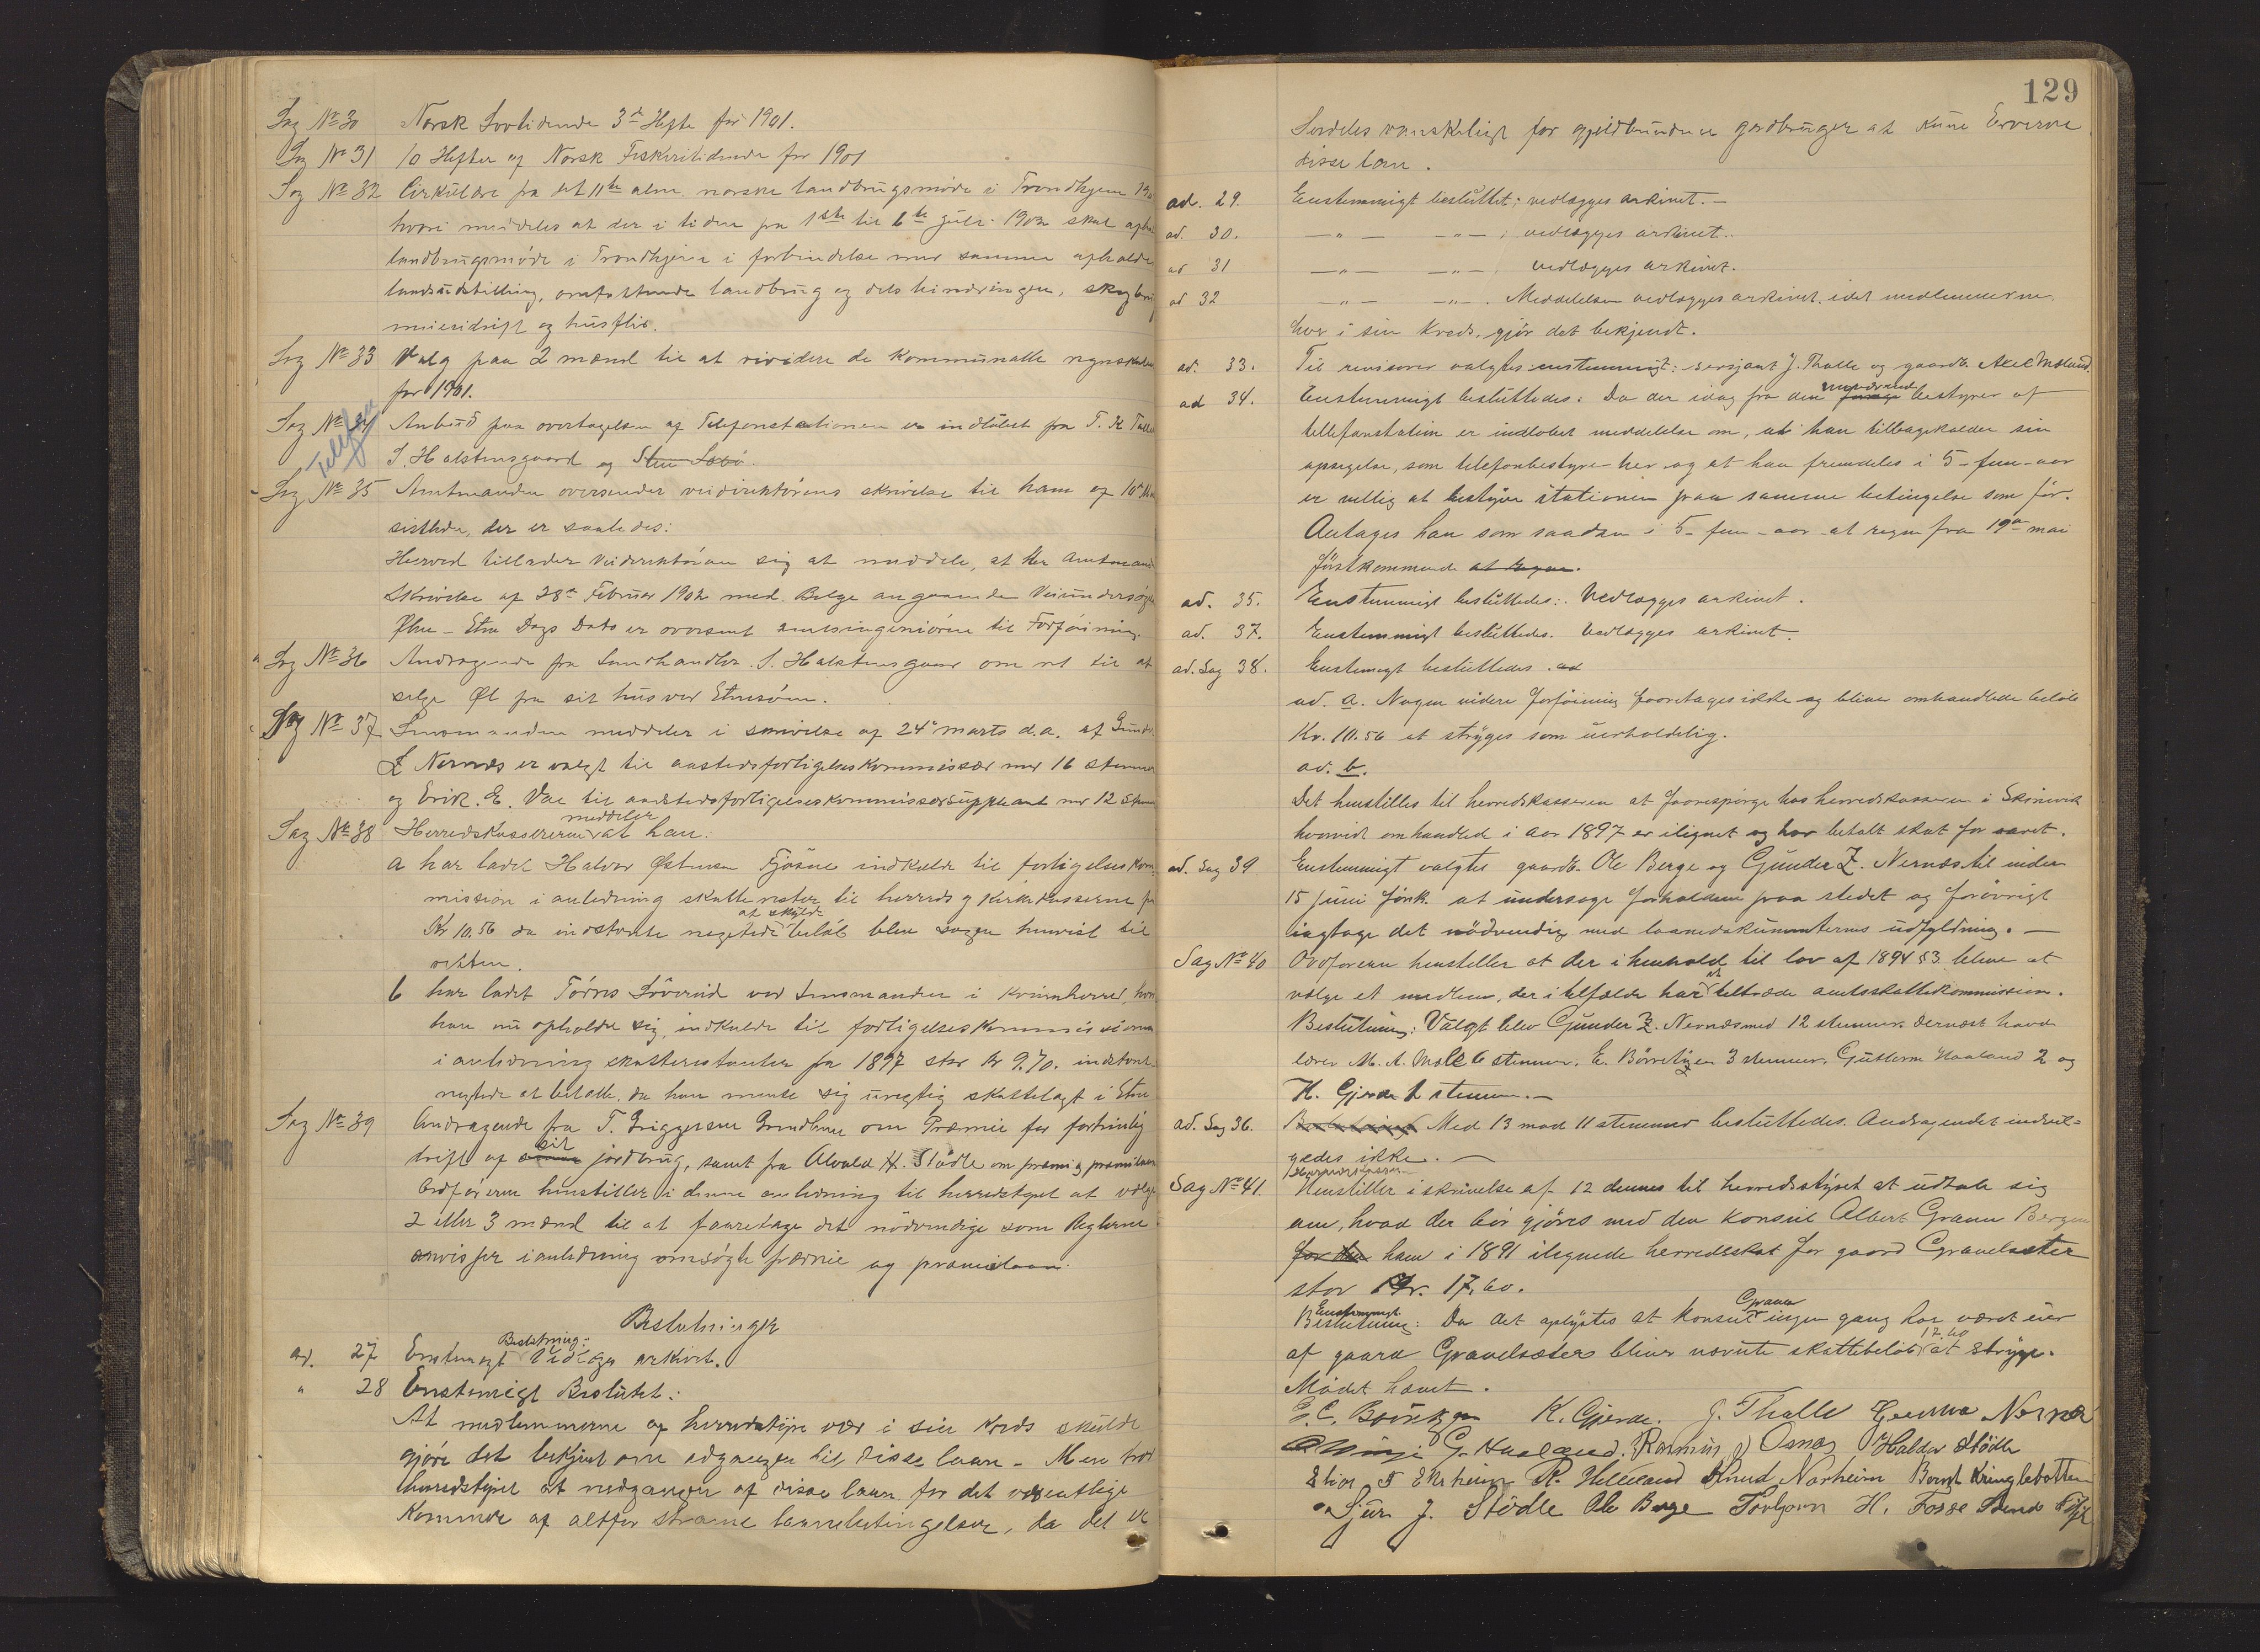 Sag No 30 Norsk Lovtidende 3die Hefte for 1901.
Sag No 31 10 Hefter af Norsk Fiskeritidende for 1901
Sag No 32 Cirkulære fra det 11te alm. norske landbrugsmøde i Trondhjem
hvori meddeles at der i tiden fra 1ste til 6te juli 1902 skal
landbrugsmøde i Trondhjem i forbindelse med samme
landsudstilling, omfattende landbrug og dets binæringer,
meieridrift og husflid.
Sag No 33 Valg paa 2 mænd til at rividere de kommunalle
for 1901.
Telefon
Sag No 34 Anbud paa overtagelsen af Telefonstationen er indløbet fra T. K.
S. Halstensgaard og Sten Sæbø.
Sag No 35 Amtmanden oversender veidirektørens skrivelse til ham af 10de
sidstleden, der er saaledes:
Herved tillader Veidirektøren sig at meddele, at Hr Amtmand
Skrivelse af 28de Februar 1902 med Bilge angaaende
Ølen - Etne Dags Dato er oversent amtsingeniøren til Forføining.
" Sag No 36 Andragende fra Landhandler S. Halstensgaard om ret til at
selge Øl fra sit hus ved Etnesøen.
Sag No 37 Lensmanden meddeler i skrivelse af 24de marts d.a. at
Z Nernæs er valgt til aastedsforligelseskommissær med 16 stemmer
og Erik. E. Vae til aastedsforligelseskommissærsuppleant med 12
Sag No 38 Herredskassereren meddeler at han:
a har ladet Halvor Østensen Fjøsne indkalde til forligelseskom-
mission i anledning skatterester til herreds og kirkekasserne
Kr 10.56 da indstævnte negtede at skylde beløb blev sagen henvist til
retten.
b har ladet Tørres Løvereid ved Lensmanden i Kvinnherred, hvor
han nu opholder sig, indkalde til forligelseskommissionen
i anledning skatterestanter for 1897 stor kr 9.70. indstævnte
negtede at betale, da han mente sig uregtig skattelagt i Etne
Sag No 39 Andragende fra T. Griggersen Grindheim om Præmie for fortrinlig
drift af sit jordbrug, samt fra Alvald H. Stødle om præmi
Ordføreren henstiller i denne anledning til herredstyret at vælge
2 eller 3 mænd til at foretage det nødvendige som Reglerne
anviser i anledning omsøgte præmie og præmielaan.
Beslutninger
ad. 27 Enstemigt Beslutning: Vedlæges arkivet.
" 28 Enstemigt Beslutet:
At medlemmerne af herredstyre vær i sin Kreds skulde
gjøre det bekjent om adgangen til disse laan - Men tror
herredstyret at nedgangen af disse laan for det væsentlige
kommer af altfor stramme laanebetingelser, da det er
129
særdeles vanskeligt for gjeldbundne gardbruger at kune Erverve
disse laan.
ad. 29. Enstemmigt besluttet; vedlægges arkivet. -
ad. 30. - " - - " - ; vedlægges arkivet.
ad 31 - " - - " - ; vedlægges arkivet.
ad 32 - " - - " - . Meddelelsen vedlægges arkivet, idet medlemmerne,
hver i sin Kreds, gjør det bekjendt.
ad. 33. Til revisorer valgtes enstemmigt: sersjant J. Thalle og gaardb. Aksel Mæland.
ad 34. Enstemmigt besluttedes: Da der idag fra den nuværende bestyrer af
tellefonstation er indløbet meddelelse om, at han tilbagekalder sin
opsigelse, som telefonbestyrer her og at han fremdeles i 5 - fem - aar
er villig at bestyre stationen paa samme betingelse som før.
Antages han som saadan i 5 - fem - aar - at regne fra 19de mai
førstkommende at regne.
ad. 35. Enstemmigt besluttedes: Vedlægges arkivet.
ad. 37. Enstemmigt besluttedes. Vedlægges arkivet.
ad. Sag 38. Enstemigt besluttedes. ad
ad. a. Nogen videre forføining foretages ikke og bliver omhandlede beløb
Kr. 10.56 at stryges som uerholdelig.
ad. b.
Det henstilles til herredskasseren at forespørge hos herredskasseren i Skånevik
hvorvidt omhandled i aar 1897 er ilignet og har betalt skat for aaret.
ad. Sag 39 Enstemmigt valgtes gaardb. Ole Berge og Gunder Z. Nernæs til inden
15 juni førstk. at undersøge forholdene paa stedet og forøvrigt
iagtage det nødvendig med laanedokumenternes udfyldning. -
Sag No 40 Ordføreren henstiller at der i henhold til lov af 1894 § 3 bliver at
vælge et medlem, der i tilfælde har at beltræde amtsskattekommission.
Beslutning: Valgt blev Gunder Z. Nernæs med 12 stemmer. dernæst havde
lærer M. A. Moe 6 stemmer. E. Børretzen 3 stemmer, Guttorm Haaland 2 og
K. Gjerde 1 stemme. -
ad. Sag 36. Med 13 mod 11 stemmer besluttedes. Andragendet indvil-
gedes ikke. -
Sag No 41. Herredskasseren Henstiller i skrivelse af 12 dennes til herredsstyret at udtale sig
om, hvad der bør gjøres med den konsul Albert Grann Bergen
for den ham i 1891 ilignede herredsskat for gaard Gravelsæter
stor Kr. 17,60.
Enstemmigt Beslutning: Da det oplystes at konsul Grann ingen gang har været eier
af gaard Gravelsæter bliver nævnte skattebeløb 17.60 at stryge.
Mødet hævet.
E. C. Børretzen K. Gjerde. J. Thalle Gunder Nernæs
G. Haaland. Rasmus J Osnes Haldor Stødle
R. Helleland Knud Norheim Bernt Kringlebotten
Sjur J. Stødle Ole Berge Torbjørn H. Fosse